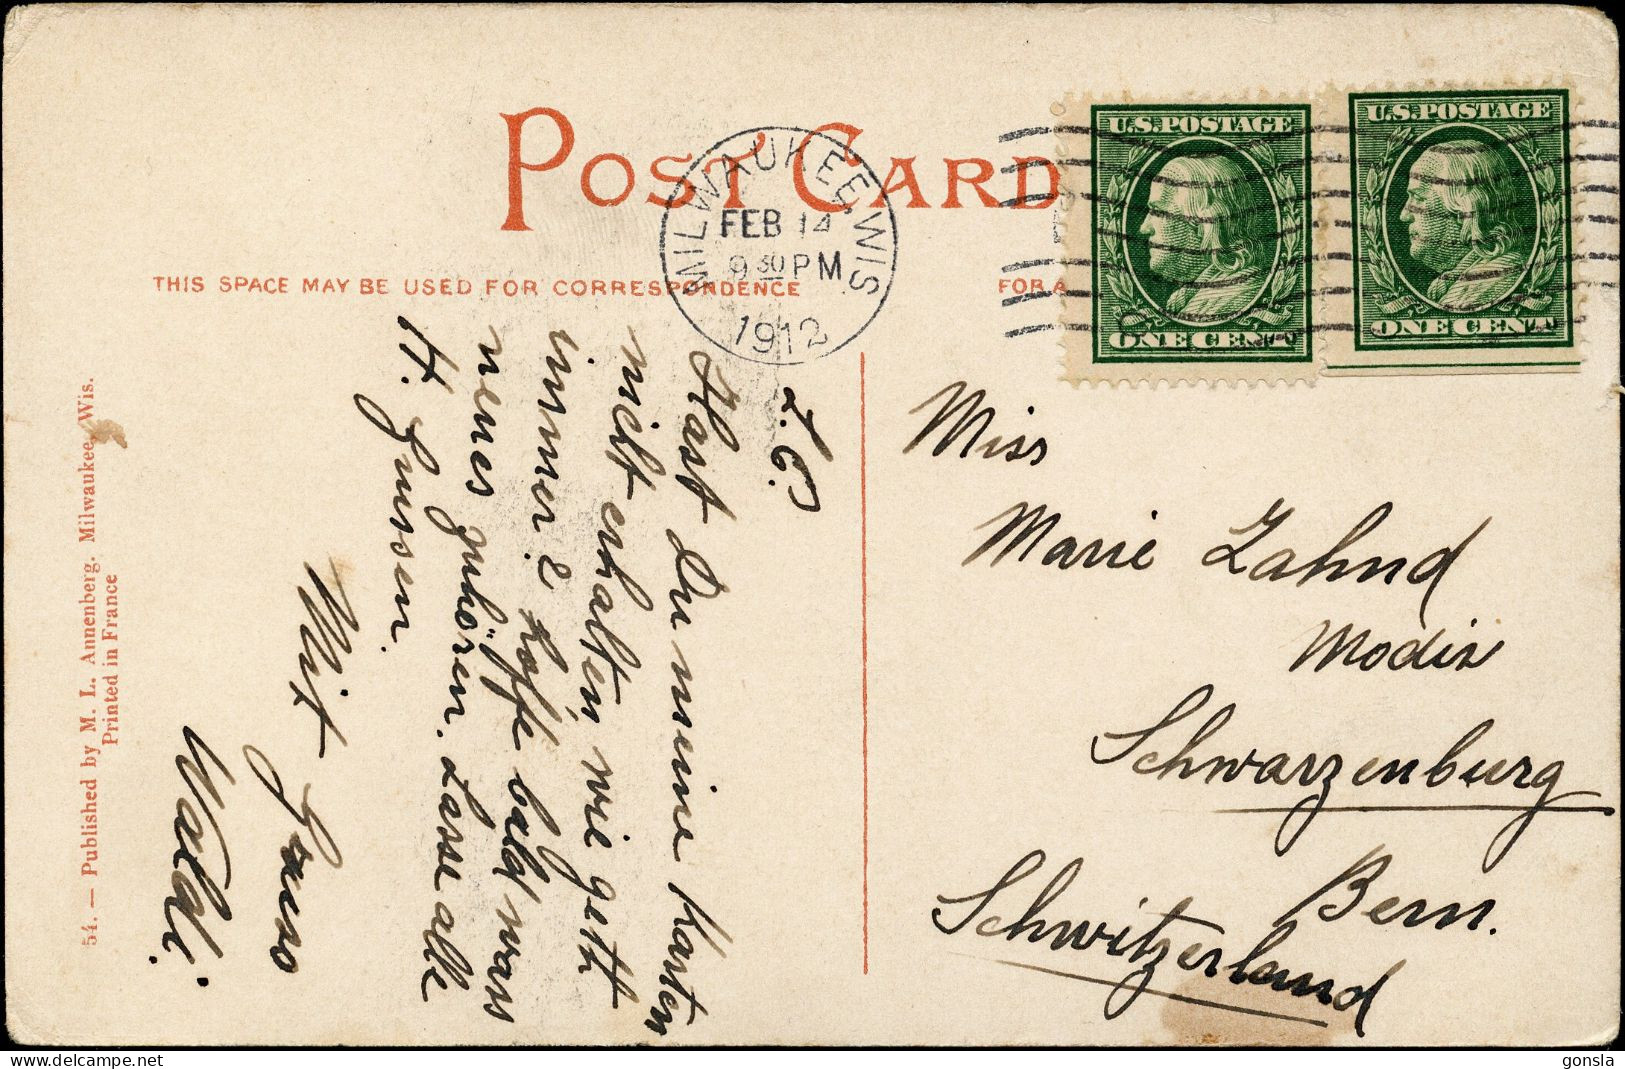 POST CARD
MILWAUKEE, WIS.
FEB 14
9 30 PM
1912
THIS SPACE MAY BE USED FOR CORRESPONDENCE
FOR A
U.S. POSTAGE
ONE CENT
U.S. POSTAGE
ONE CENT
L. C.
Hast Du meine Karten
nicht erhalten, wie geht
immer? hoffe bald was
neues zuhören. Lasse alle
H. grüssen.
Mit Gruss
Waldi.
Miss
Marie Zahnd
Modis
Schwarzenburg
Bern.
Schwitzerland
54. — Published by M. L. Annenberg. Milwaukee, Wis.
Printed in France
gonsla